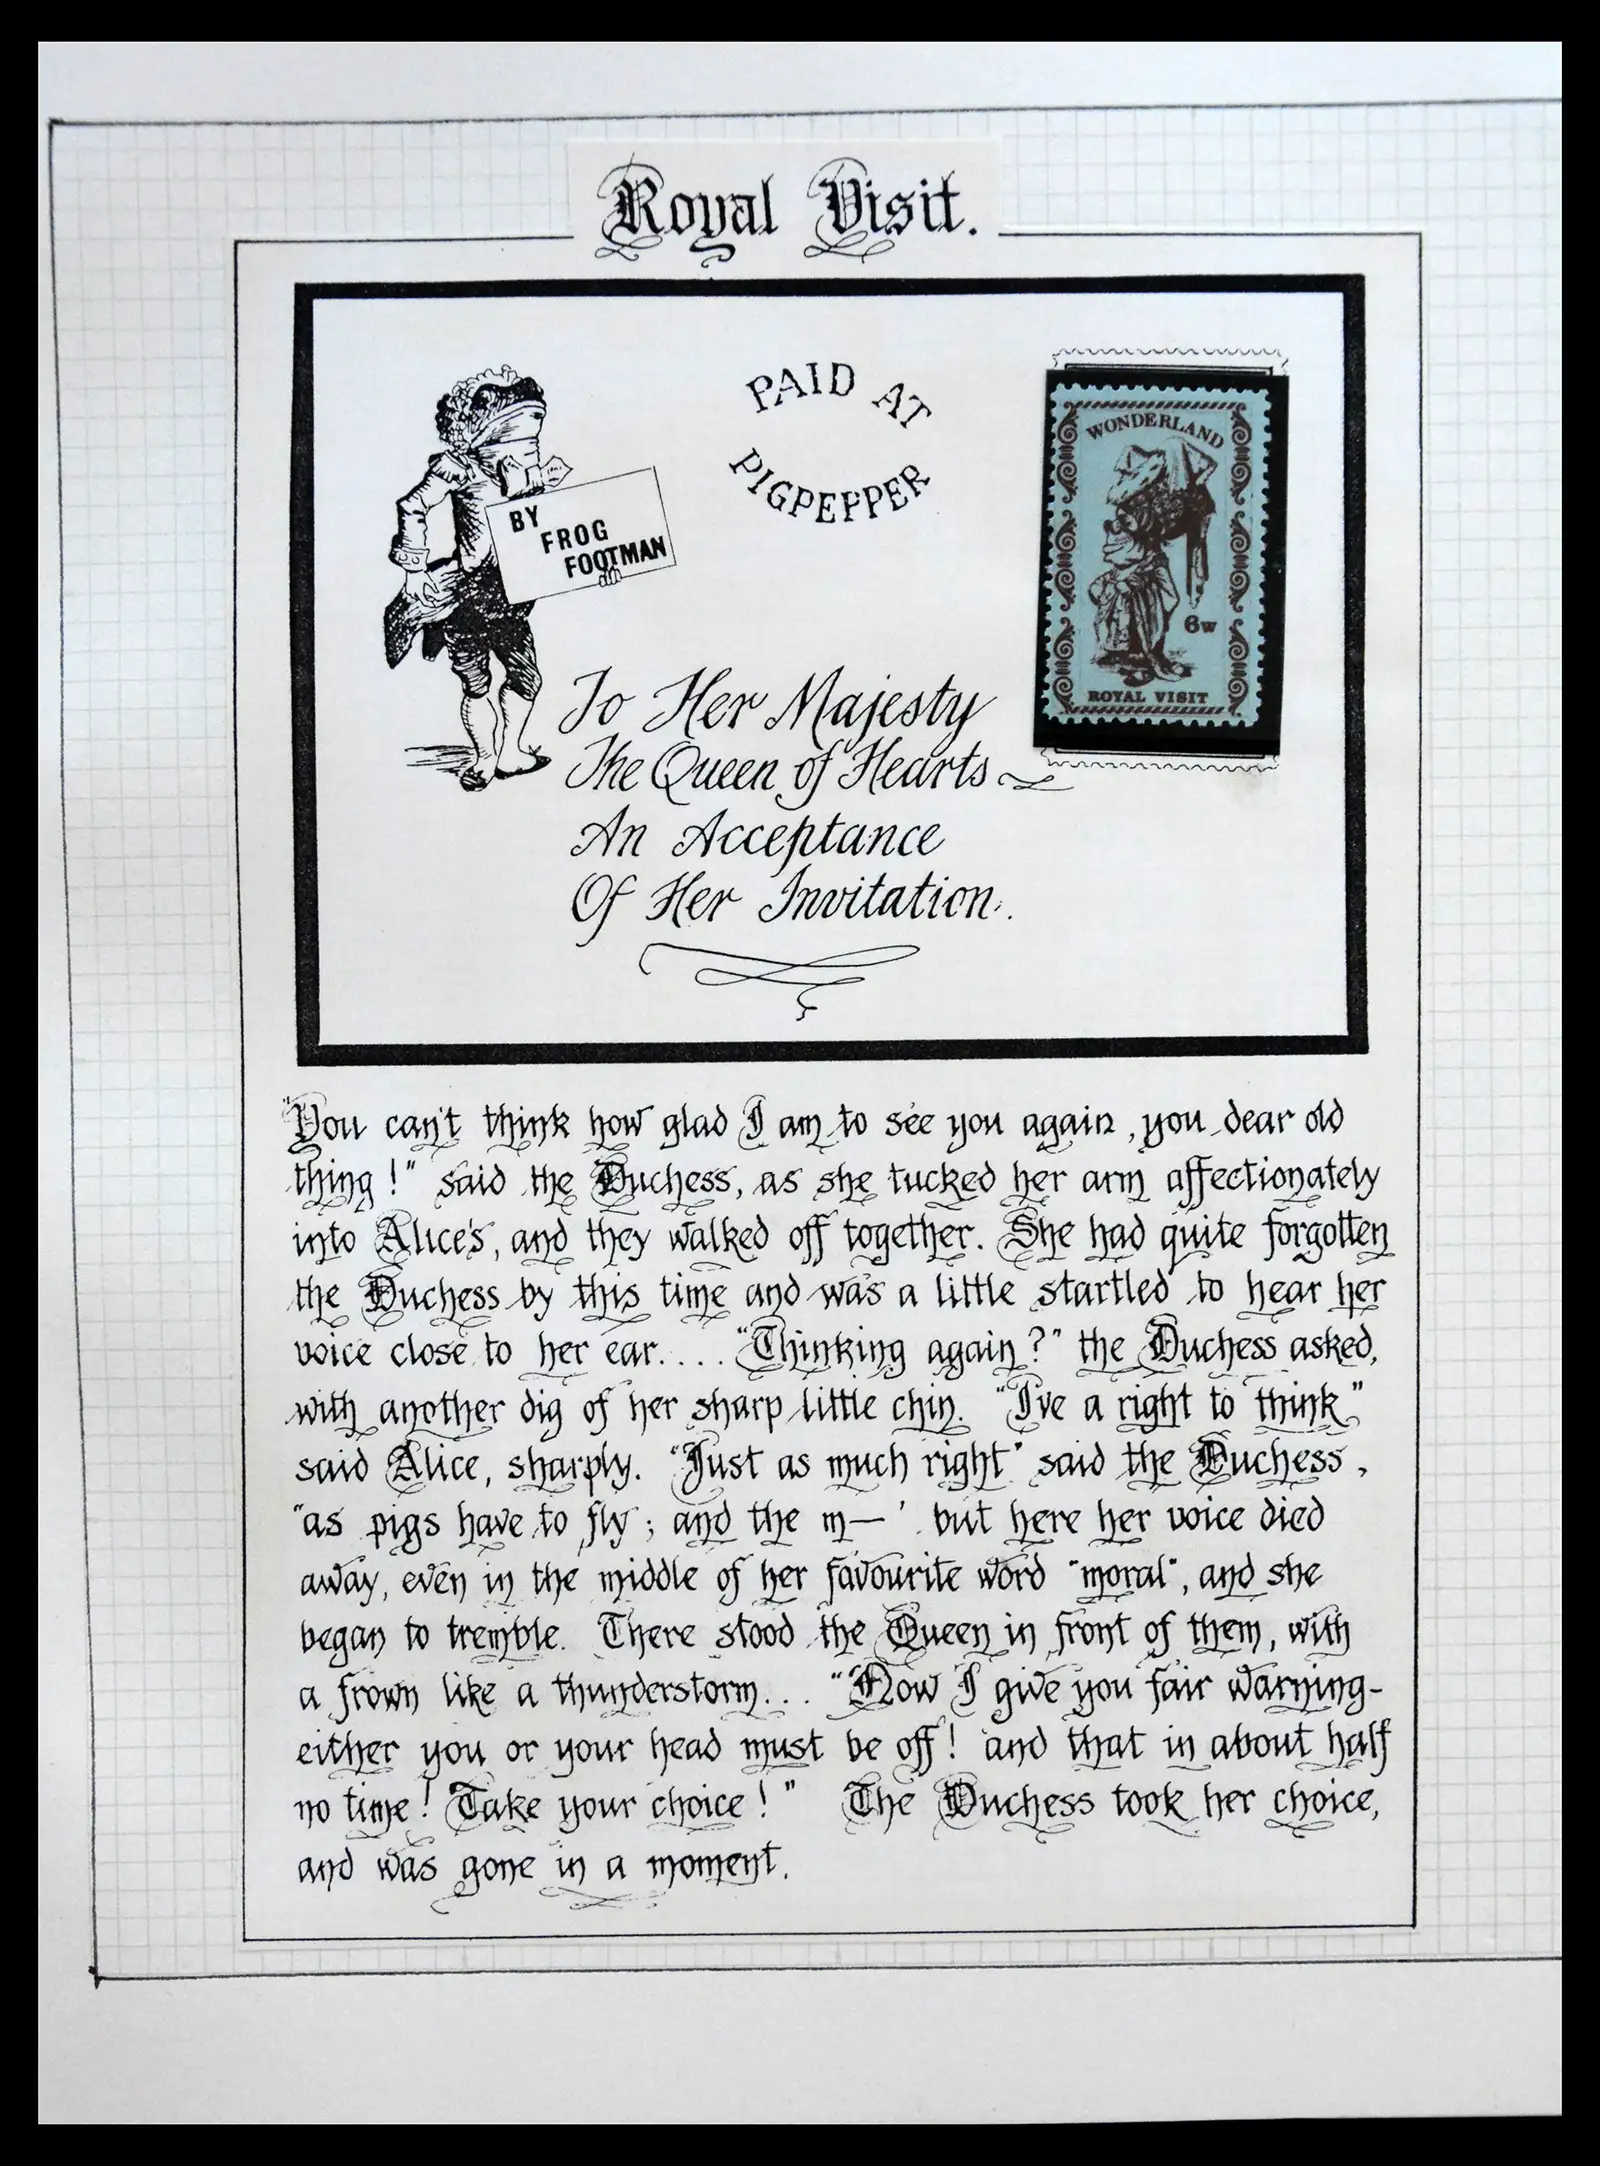 Royal Visit.
PAID AT
PIGPEPPER
BY
FROG
FOOTMAN
WONDERLAND
6w
ROYAL VISIT
To Her Majesty
The Queen of Hearts
An Acceptance
Of Her Invitation.
"You can't think how glad I am to see you again, you dear old
thing!" said the Duchess, as she tucked her arm affectionately
into Alice's, and they walked off together. She had quite forgotten
the Duchess by this time and was a little startled to hear her
voice close to her ear.... "Thinking again?" the Duchess asked,
with another dig of her sharp little chin. "I've a right to think"
said Alice, sharply. "Just as much right" said the Duchess,
"as pigs have to fly; and the m—' but here her voice died
away, even in the middle of her favourite word "moral", and she
began to tremble. There stood the Queen in front of them, with
a frown like a thunderstorm... "Now I give you fair warning-
either you or your head must be off! and that in about half
no time! Take your choice!" The Duchess took her choice,
and was gone in a moment.